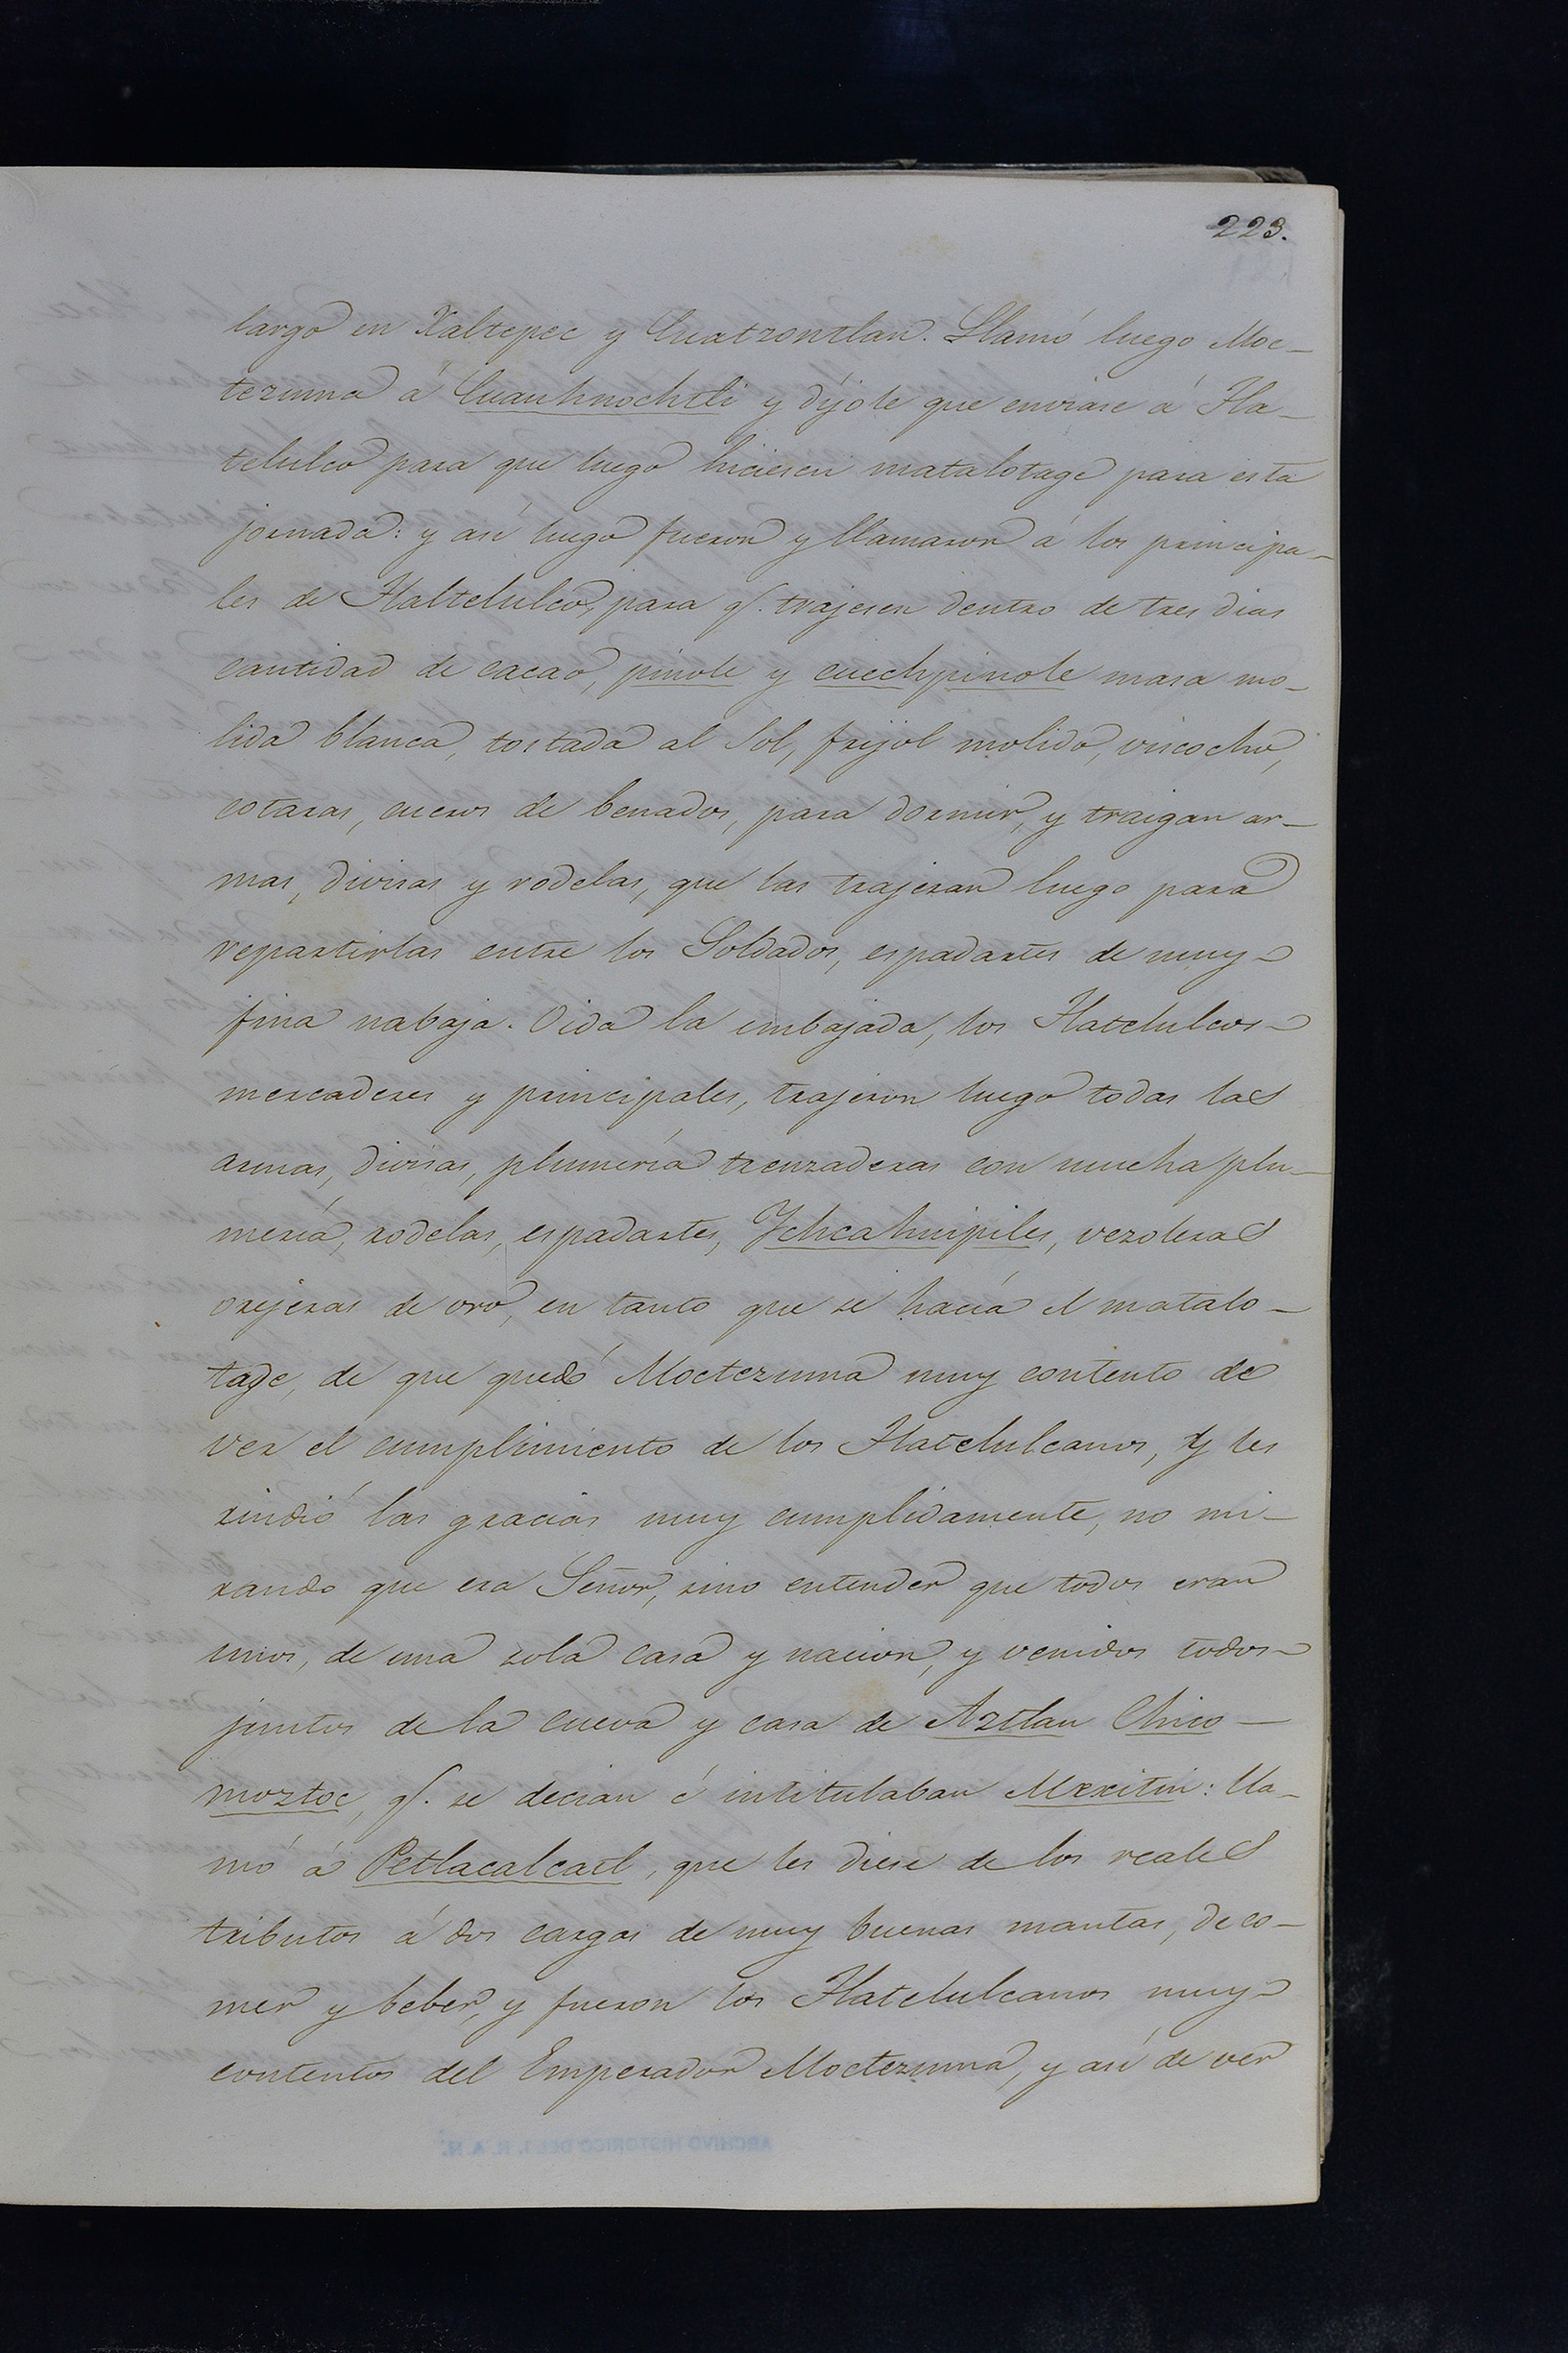 223.
largo en Xaltepec y Cuatzontlan. Llamó luego Moc-
tezuma á Cuauhnochtli y díjole que enviase á Tla-
telulco para que luego hiciesen matalotage para esta
jornada: y así luego fueron y llamaron á los principa-
les de Tlaltelulco, para q.e trajesen dentro de tres dias
cantidad de cacao, pinole y cuechpinole masa mo-
lida blanca, tostada al Sol, frijol molido, viscocho,
cotaras, cueros de benados, para dormir, y traigan ar-
mas, divisas y rodelas, que las trajeran luego para
repartirlas entre los Soldados, espadartes de muy
fina nabaja. Oida la embajada, los Tlatelulcos
mercaderes y principales, trajeron luego todas las
armas, divisas, plumería trenzaderas con mucha plu-
mería, rodelas, espadartes, Ychcahuipiles, vezoleras
orejeras de oro, en tanto que se hacía el matalo-
tage, de que quedó Moctezuma muy contento de
ver el cumplimiento de los Tlatelulcanos, y les
rindió las gracias muy cumplidamente, no mi-
rando que era Señor, sino entender que todos eran
unos, de una sola casa y nacion, y venidos todos
juntos de la cueva y casa de Aztlan Chico-
moztoc, q.e se decian é intitulaban Mexitin: lla-
mó á Petlacalcatl, que les diese de los reales
tributos á dos cargas de muy buenas mantas, de co-
mer y beber, y fueron los Tlatelulcanos muy
contentos del Emperador Moctezuma, y así de ver
ARCHIVO HISTORICO DEL I. N. A. H.